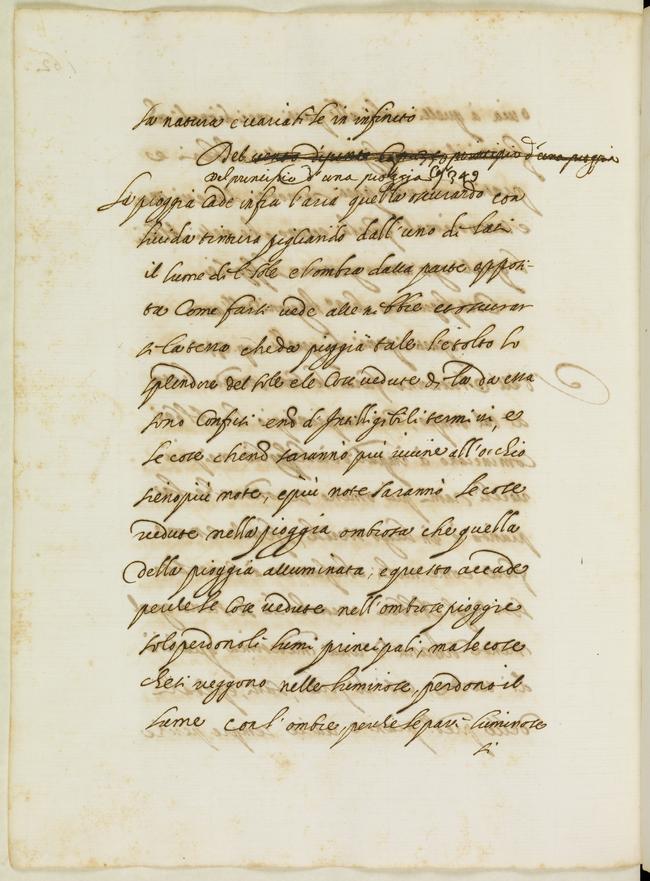 la natura è variabile in infinito
Del
Del principio d'una pioggia Cap. 349
La pioggia cade infra l'aria quella oscurando con
livida tintura pigliando dall'uno de lati
il lume del sole e l'ombra dalla parte opposi-
ta Come farsi vede alle nibbie et oscurar
si la terra che da pioggia tale l'è tolto lo
splendore del sole e le Cose vedute di là da essa
sono Confuse e no d'Intelligibili termini, e
le cose che no saranno più vicine all'occhio
sieno più note, e più note saranno le cose
vedute nella pioggia ombrosa che quella
della pioggia alluminata, e questo accade
perche le Cose vedute nell'ombrose pioggie
solo perdono li lumi principali, ma le cose
che si veggono nelle luminose, perdono il
lume con l'ombre, perche le parti luminose
si